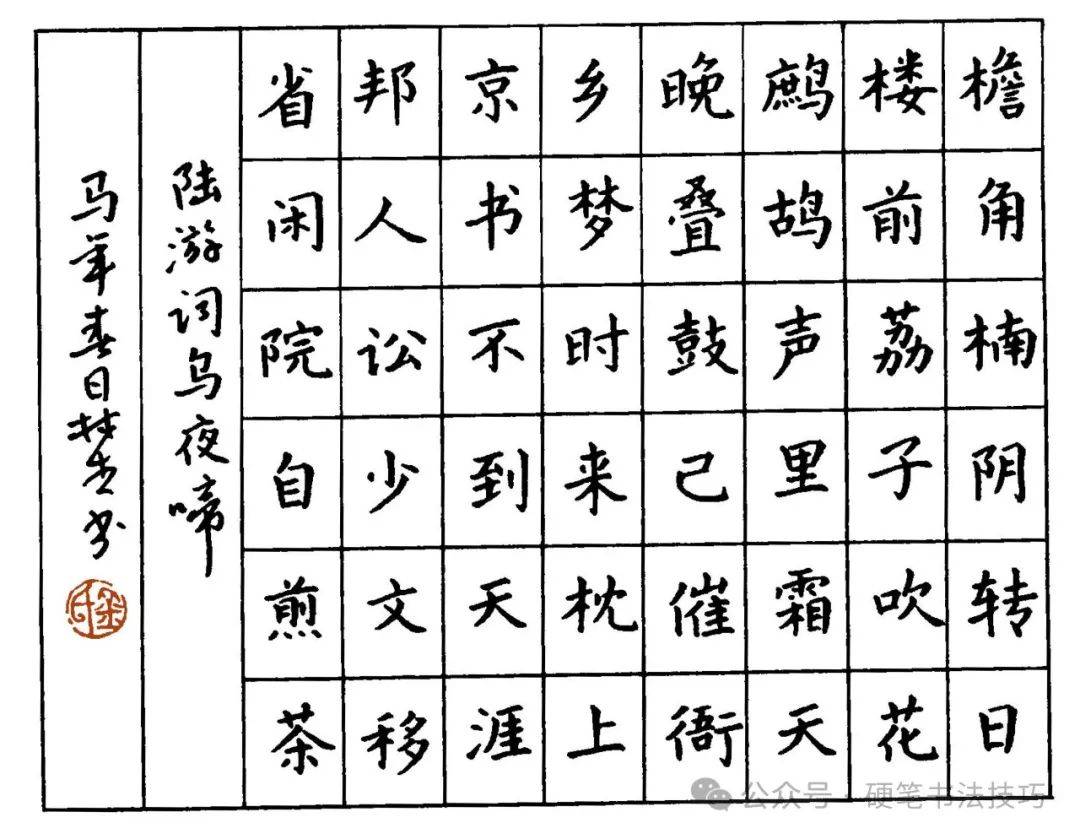 檐角楠阴转日
楼前荔子吹花
鹧鸪声里霜天
晚叠鼓已催衙
乡梦时来枕上
京书不到天涯
邦人讼少文移
省闲院自煎茶
陆游词乌夜啼
马年春日梦书
公众号·硬笔书法技巧